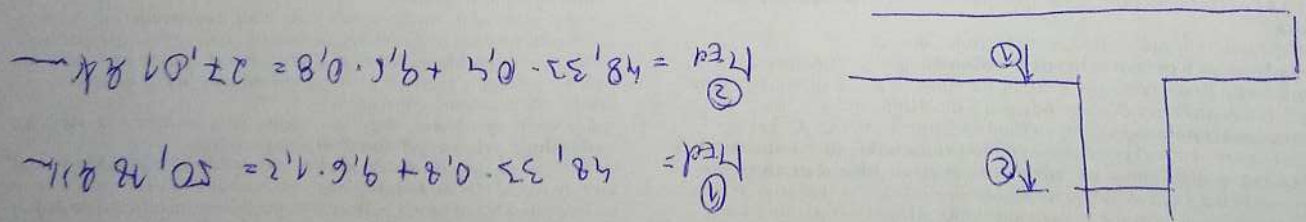 ②
M_Ed^① = 48,33 · 0,8 + 9,6 · 1,2 = 50,18 kNm
①
M_Ed^② = 48,33 · 0,4 + 9,6 · 0,8 = 27,01 kNm